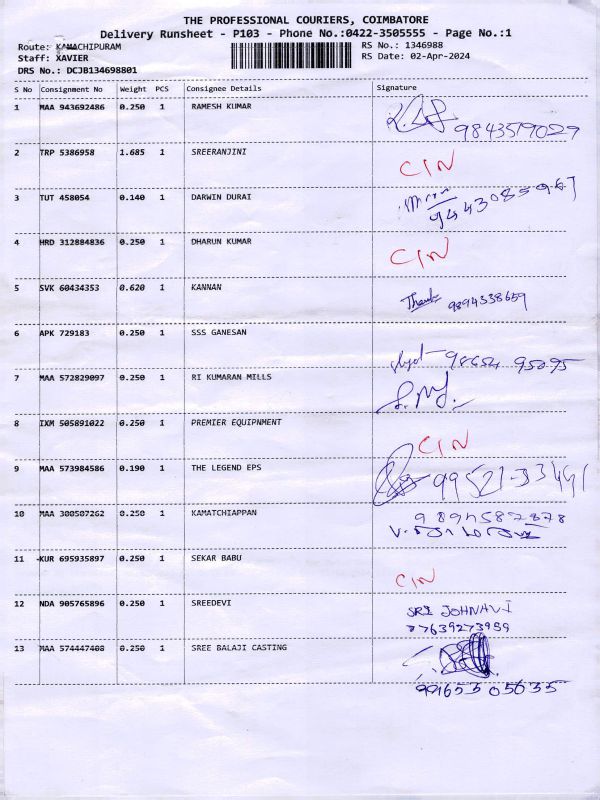 THE PROFESSIONAL COURIERS, COIMBATORE
Delivery Runsheet - P103 - Phone No.:0422-3505555 - Page No.:1
Route: KAMACHIPURAM
RS No.: 1346988
Staff: XAVIER
RS Date: 02-Apr-2024
DRS No.: DCJB134698801
S No Consignment No Weight PCS Consignee Details Signature
1 MAA 943692486 0.250 1 RAMESH KUMAR
9843579029
2 TRP 5386958 1.685 1 SREERANJINI
CIN
3 TUT 458054 0.140 1 DARWIN DURAI
4 HRD 312884836 0.250 1 DHARUN KUMAR
CIN
5 SVK 60434353 0.620 1 KANNAN
9894338659
6 APK 729183 0.250 1 SSS GANESAN
98654 95095
7 MAA 572829097 0.250 1 RI KUMARAN MILLS
8 IXM 505891022 0.250 1 PREMIER EQUIPNMENT
CIN
9 MAA 573984586 0.190 1 THE LEGEND EPS
99521-33441
10 MAA 300507262 0.250 1 KAMATCHIAPPAN
9894587878
11 KUR 695935897 0.250 1 SEKAR BABU
CIN
12 NDA 905765896 0.250 1 SREEDEVI
SRI JOHNAVI
77639273959
13 MAA 574447408 0.250 1 SREE BALAJI CASTING
991653 05635